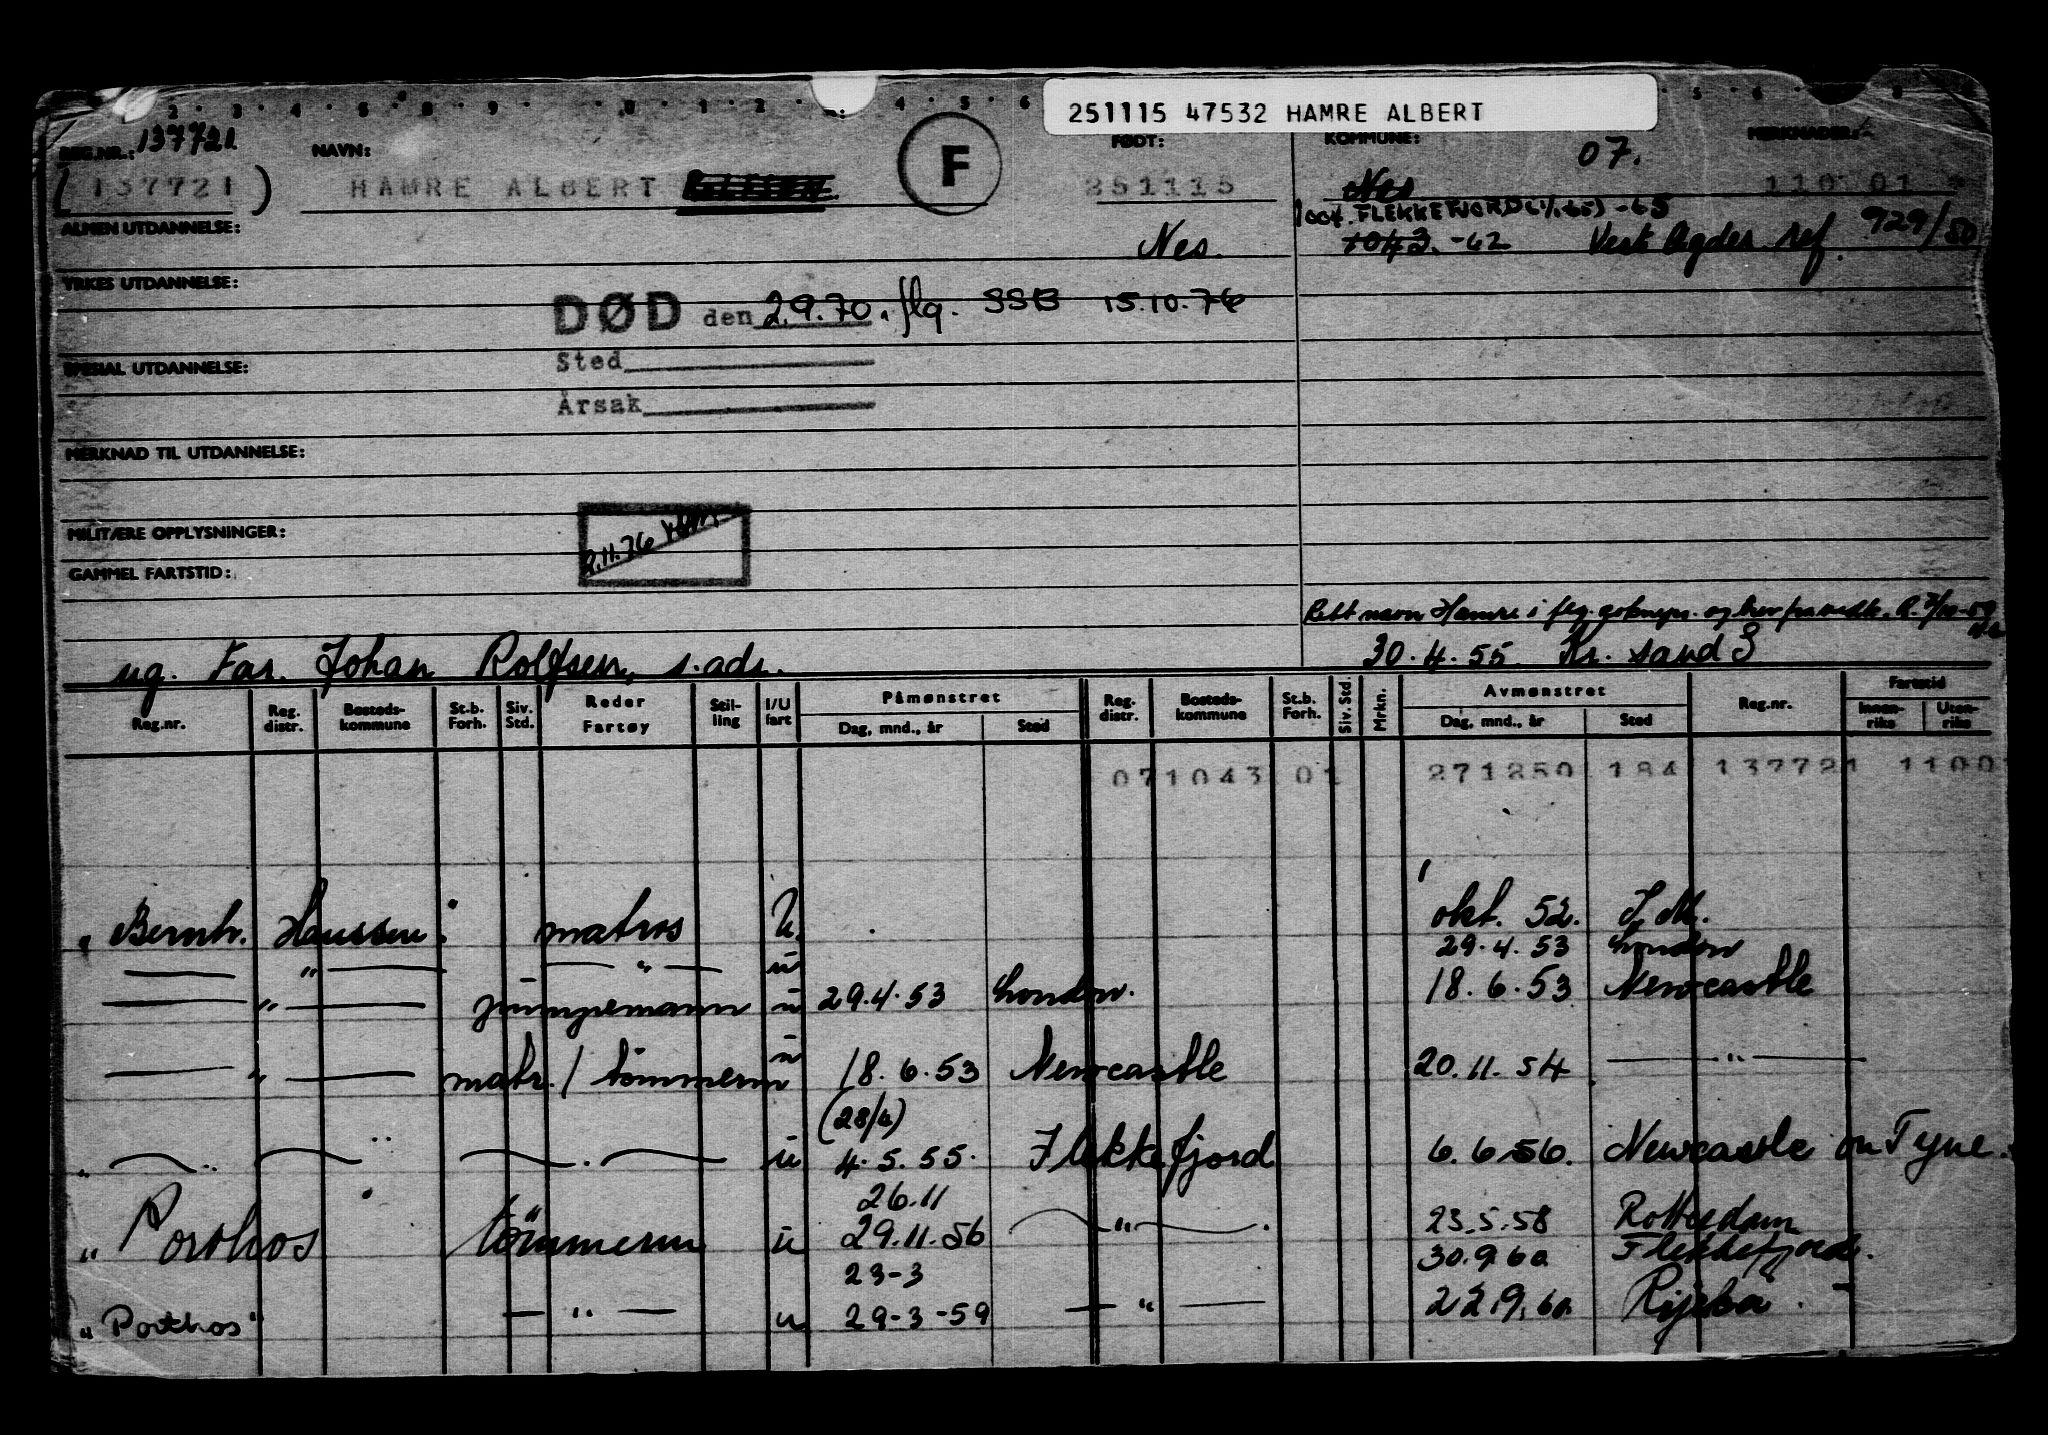 251115 47532 HAMRE ALBERT
REG.NR.: 137721. NAVN: F FØDT: KOMMUNE: 07. MERKNADER:
(137721) HAMRE ALBERT 251115 Nes 110 01
1004. FLEKKEFJORD (1/1-65) -65
ALMEN UTDANNELSE: Nes. 1043. -62 Vest Agder ref. 929/50
YRKES UTDANNELSE:
DØD den 2.9.70. flg. SSB 15.10.76
Sted
SPESIAL UTDANNELSE:
Årsak
MERKNAD TIL UTDANNELSE:
MILITÆRE OPPLYSNINGER:
2.11.76
GAMMEL FARTSTID:
Rett navn Hamre i flg.
ug. Far. Johan Rolfsen, s. adr. 30.4.55 Kr. sand S
Reg.nr. Reg. distr. Bosteds- kommune St.b. Forh. Siv. Std. Reder Fartøy Stil- ling I/U fart Påmønstret Dag, mnd., år Sted Reg. distr. Bosteds- kommune St.b. Forh. Siv. Std. Mrkn. Avmønstret Dag, mnd., år Sted Reg.nr. Fartstid Innen- riks Uten- riks
071043 01 271250 184 137721 1100
" Bernh. Hanssen" matros U. okt. 52. J.M.
— " — — " — u 29.4.53 London
— " — pumpemann u 29.4.53 London. 18.6.53 Newcastle
— " — matr./tømmerm u 18.6.53 Newcastle 20.11.54 — " —
(28/4)
" — " — — " — u 4.5.55. Flekkefjord 6.6.56. Newcastle on Tyne.
26.11
" Porthos" tømmerm u 29.11.56 — " — 23.5.58 Rotterdam
23-3 30.9.60 Flekkefjord.
" Porthos" — " — u 29-3-59 — " — 22.9.60. Rijeka.